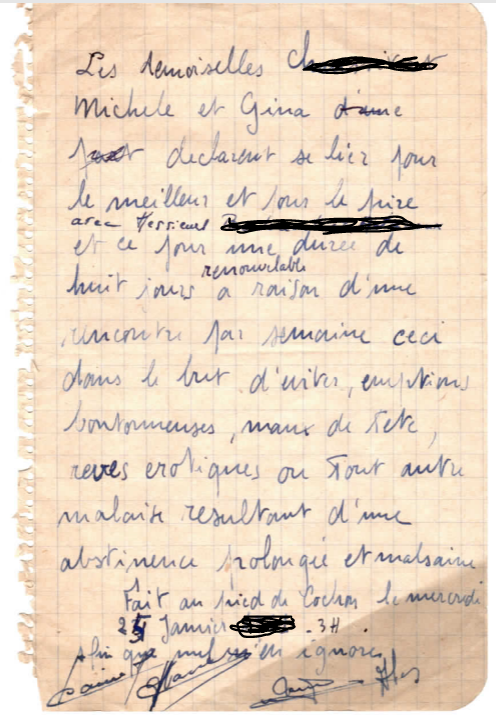 Les demoiselles
Michele et Gina d'une
part declarent se lier pour
le meilleur et pour le pire
avec Messieurs
et ce pour une durée de
renouvelable
huit jours a raison d'une
rencontre par semaine ceci
dans le but d'eviter, eruptions
boutonneuses, maux de tete,
reves erotiques ou tout autre
malaise resultant d'une
abstinence prolongée et malsaine
Fait au pied de Cochon le mercredi
25 Janvier - 3H
Afin que nul n'en ignore